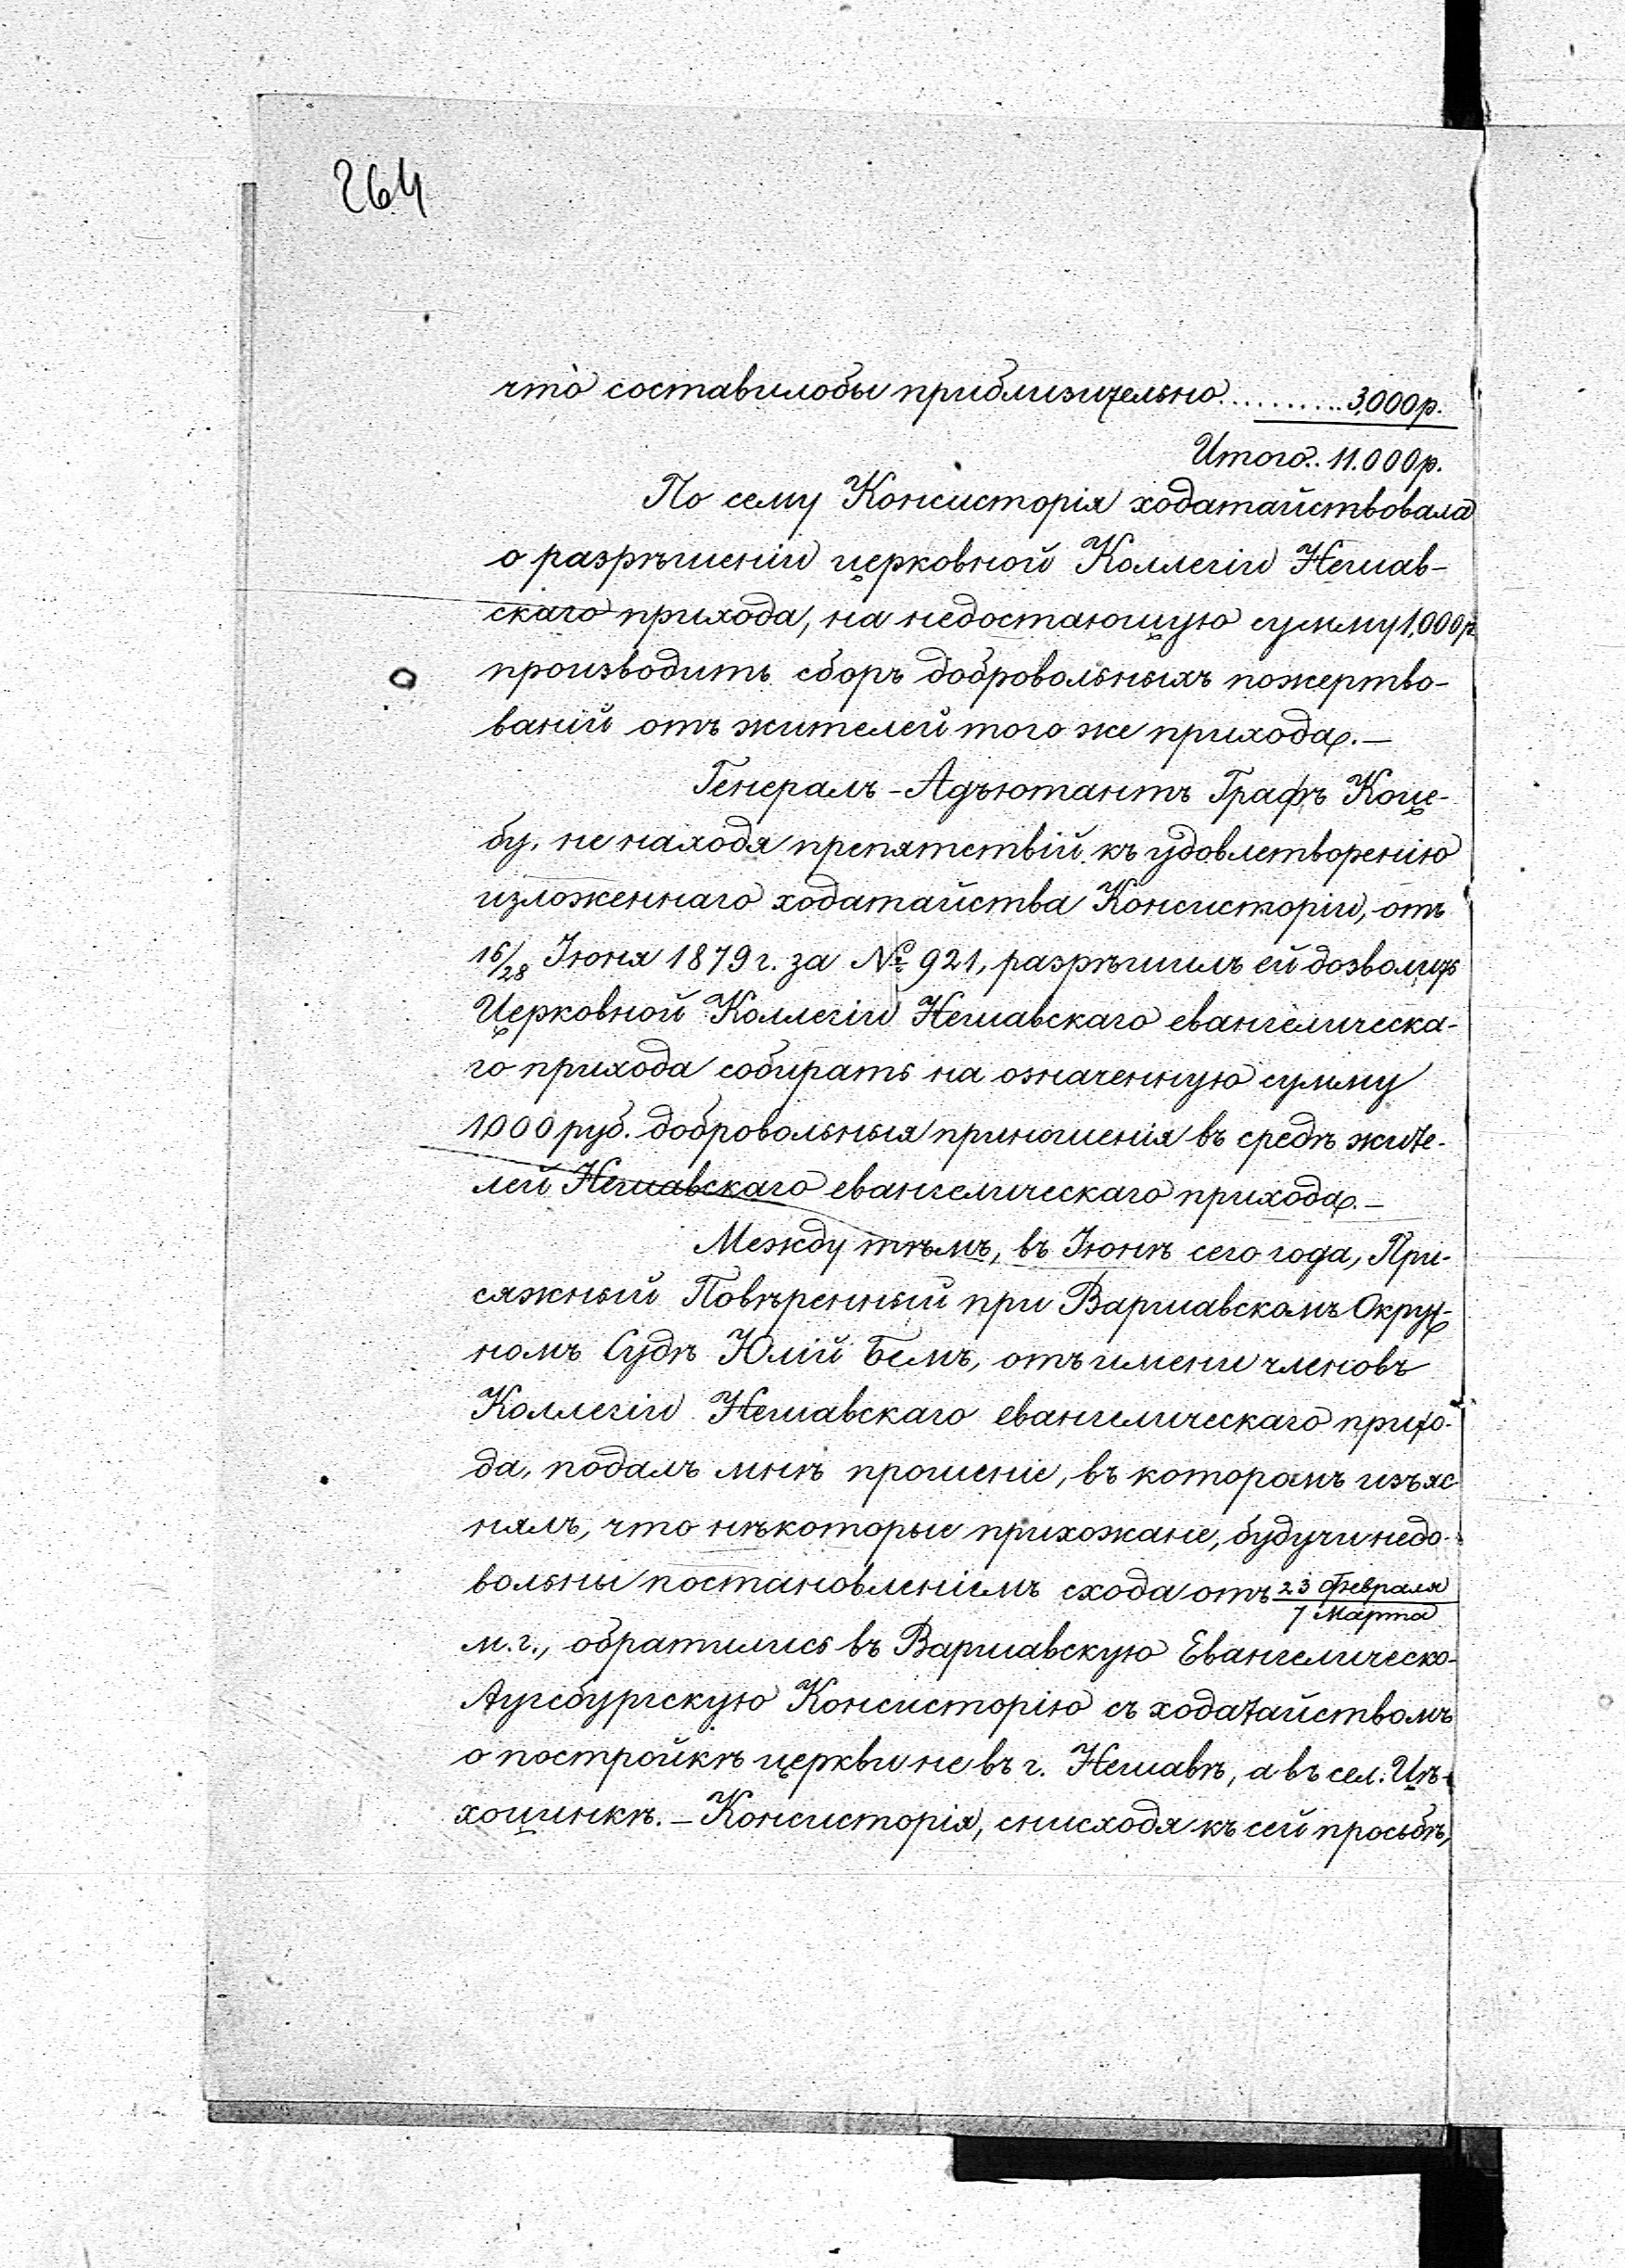 264
что̀ составилобы приблизительно..........3,000р.
Итого.. 11.000р.
По сему Консисторія ходатайствовала
о разрѣшеніи церковной Коллегіи Нешав-
скаго прихода, на недостающую сумму 1,000р.
производить сборъ добровольныхъ пожертво-
ваній отъ жителей того же прихода.—
Генералъ-Адъютантъ Графъ Коце-
бу, не находя препятствій къ удовлетворенію
изложеннаго ходатайства Консисторіи, отъ
16/28 Іюня 1879 г. за № 921, разрѣшилъ ей дозволить
Церковной Коллегіи Нешавскаго евангелическа-
го прихода собирать на означенную сумму
1,000 руб. добровольныя приношенія въ средѣ жите-
лей Нешавскаго евангелическаго прихода.—
Между тѣмъ, въ Іюнѣ сего года, При-
сяжный Повѣренный при Варшавскомъ Окруж-
номъ Судѣ Юлій Бемъ, отъ имени членовъ
Коллегіи Нешавскаго евангелическаго прихо-
да, подалъ мнѣ прошеніе, въ которомъ изъяс-
нялъ, что нѣкоторые прихожане, будучи недо-
вольны постановленіемъ схода отъ 23 Февраля/7 Марта
м.г., обратились въ Варшавскую Евангелическо-
Аугсбургскую Консисторію съ ходатайствомъ
о постройкѣ церкви не въ г. Нешавѣ, а въ сел. Цѣ-
хоцинкѣ.—Консисторія, снисходя къ сей просьбѣ,